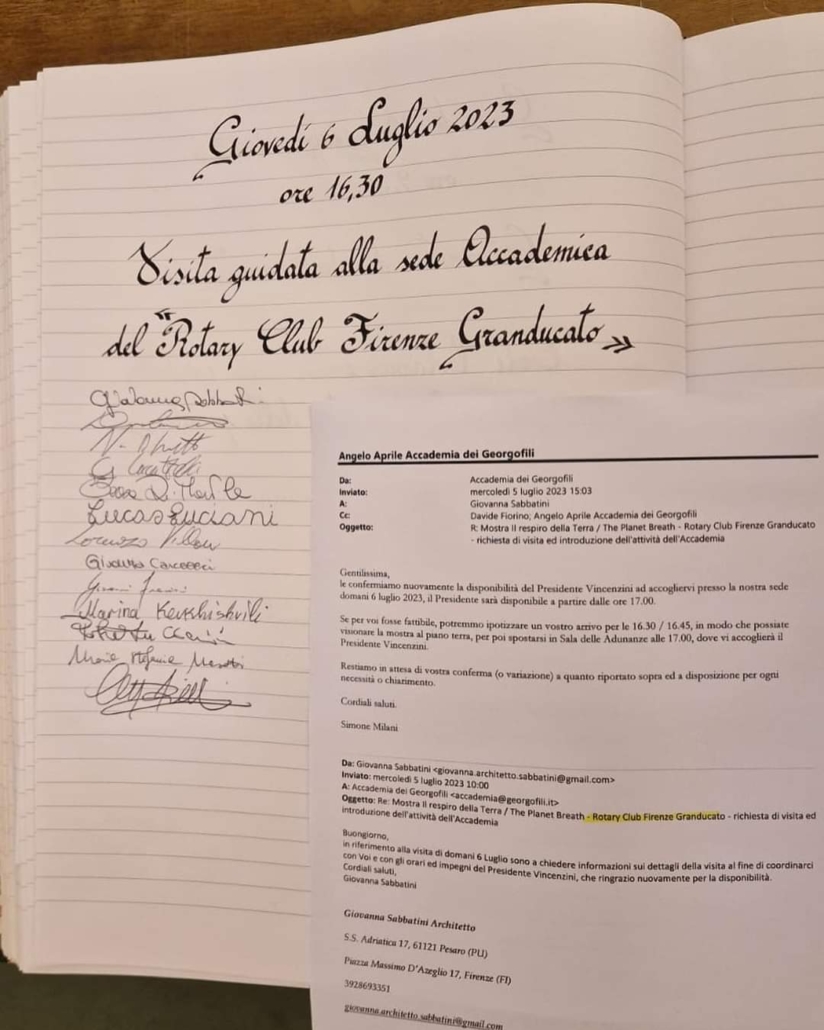 Giovedí 6 Luglio 2023
ore 16,30
Visita guidata alla sede Accademica
del "Rotary Club Firenze Granducato"
Giovanna Sabbatini
Lucas Luciani
Lorenzo
Marina Kevkhishvili
Maria Stefania
Angelo Aprile Accademia dei Georgofili
Da: Accademia dei Georgofili
Inviato: mercoledì 5 luglio 2023 15:03
A: Giovanna Sabbatini
Cc: Davide Fiorino; Angelo Aprile Accademia dei Georgofili
Oggetto: R: Mostra Il respiro della Terra / The Planet Breath - Rotary Club Firenze Granducato
- richiesta di visita ed introduzione dell'attività dell'Accademia
Gentilissima,
le confermiamo nuovamente la disponibilità del Presidente Vincenzini ad accogliervi presso la nostra sede
domani 6 luglio 2023, il Presidente sarà disponibile a partire dalle ore 17.00.
Se per voi fosse fattibile, potremmo ipotizzare un vostro arrivo per le 16.30 / 16.45, in modo che possiate
visionare la mostra al piano terra, per poi spostarsi in Sala delle Adunanze alle 17.00, dove vi accoglierà il
Presidente Vincenzini.
Restiamo in attesa di vostra conferma (o variazione) a quanto riportato sopra ed a disposizione per ogni
necessità o chiarimento.
Cordiali saluti.
Simone Milani
Da: Giovanna Sabbatini <giovanna.architetto.sabbatini@gmail.com>
Inviato: mercoledì 5 luglio 2023 10:00
A: Accademia dei Georgofili <accademia@georgofili.it>
Oggetto: Re: Mostra Il respiro della Terra / The Planet Breath - Rotary Club Firenze Granducato - richiesta di visita ed
introduzione dell'attività dell'Accademia
Buongiorno,
in riferimento alla visita di domani 6 Luglio sono a chiedere informazioni sui dettagli della visita al fine di coordinarci
con Voi e con gli orari ed impegni del Presidente Vincenzini, che ringrazio nuovamente per la disponibilità.
Cordiali saluti,
Giovanna Sabbatini
Giovanna Sabbatini Architetto
S.S. Adriatica 17, 61121 Pesaro (PU)
Piazza Massimo D'Azeglio 17, Firenze (FI)
3928693351
giovanna.architetto.sabbatini@gmail.com